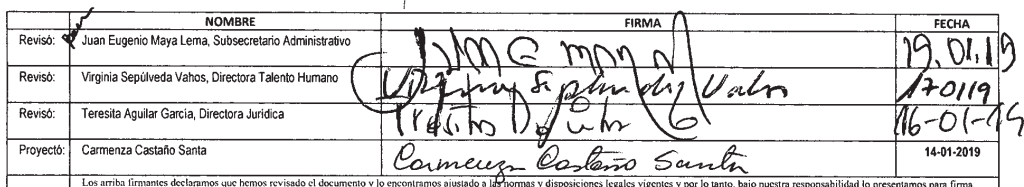 NOMBRE FIRMA FECHA
Revisó: Juan Eugenio Maya Lema, Subsecretario Administrativo 19.01.19
Revisó: Virginia Sepúlveda Vahos, Directora Talento Humano Virginia Sepulveda Vahos 170119
Revisó: Teresita Aguilar García, Directora Jurídica 16-01-19
Proyectó: Carmenza Castaño Santa Carmenza Castaño Santa 14-01-2019
Los arriba firmantes declaramos que hemos revisado el documento y lo encontramos ajustado a las normas y disposiciones legales vigentes y por lo tanto, bajo nuestra responsabilidad lo presentamos para firma